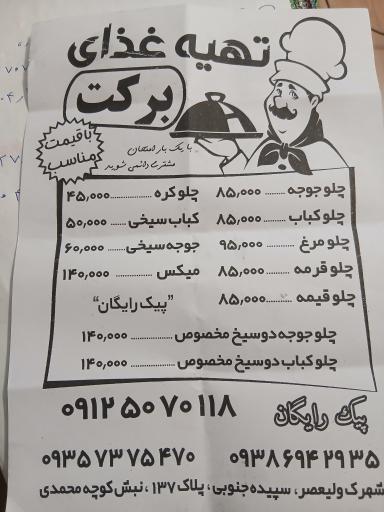 تهیه غذای
برکت
با قیمت مناسب
با یک بار امتحان
مشتری دائمی شوید
چلو جوجه ........ ۸۵,۰۰۰
چلو کباب ........ ۸۵,۰۰۰
چلو مرغ ........ ۹۵,۰۰۰
چلو قرمه ........ ۸۵,۰۰۰
چلو قیمه ........ ۸۵,۰۰۰
چلو کره ........ ۴۵,۰۰۰
کباب سیخی ........ ۵۰,۰۰۰
جوجه سیخی ........ ۶۰,۰۰۰
میکس ........ ۱۴۰,۰۰۰
"پیک رایگان"
چلو جوجه دوسیخ مخصوص ........ ۱۴۰,۰۰۰
چلو کباب دوسیخ مخصوص ........ ۱۴۰,۰۰۰
پیک رایگان
۰۹۱۲ ۵۰ ۷۰ ۱۱۸
۰۹۳۸ ۶۹۴ ۲۹ ۳۵
۰۹۳۵ ۷۳ ۷۵ ۴۷۰
شهرک ولیعصر، سپیده جنوبی، پلاک ۱۳۷، نبش کوچه محمدی